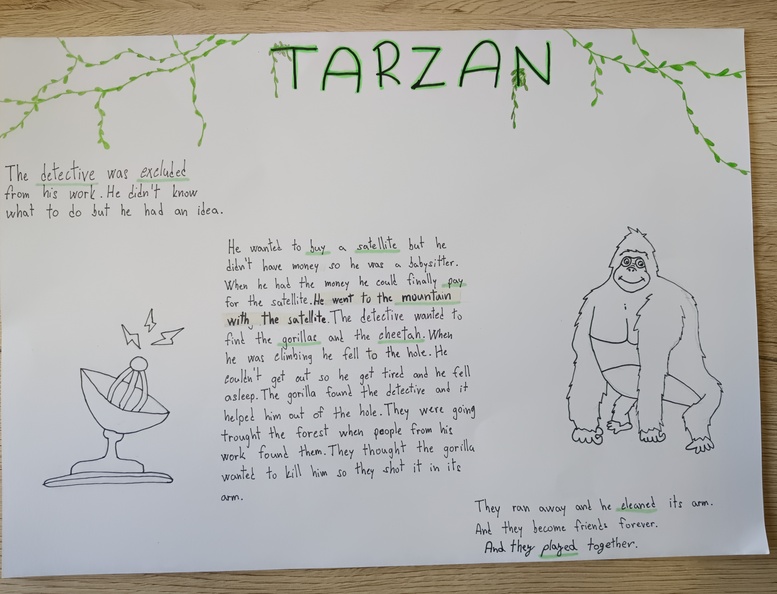 TARZAN
The detective was excluded
from his work. He didn't know
what to do but he had an idea.
He wanted to buy a satellite but he
didn't have money so he was a babysitter.
When he had the money he could finally pay
for the satellite. He went to the mountain
with the satellite. The detective wanted to
find the gorillas and the cheetah. When
he was climbing he fell to the hole. He
couldn't get out so he get tired and he fell
asleep. The gorilla found the detective and it
helped him out of the hole. They were going
trought the forest when people from his
work found them. They thought the gorilla
wanted to kill him so they shot it in its
arm.
They ran away and he cleaned its arm.
And they become friends forever.
And they played together.